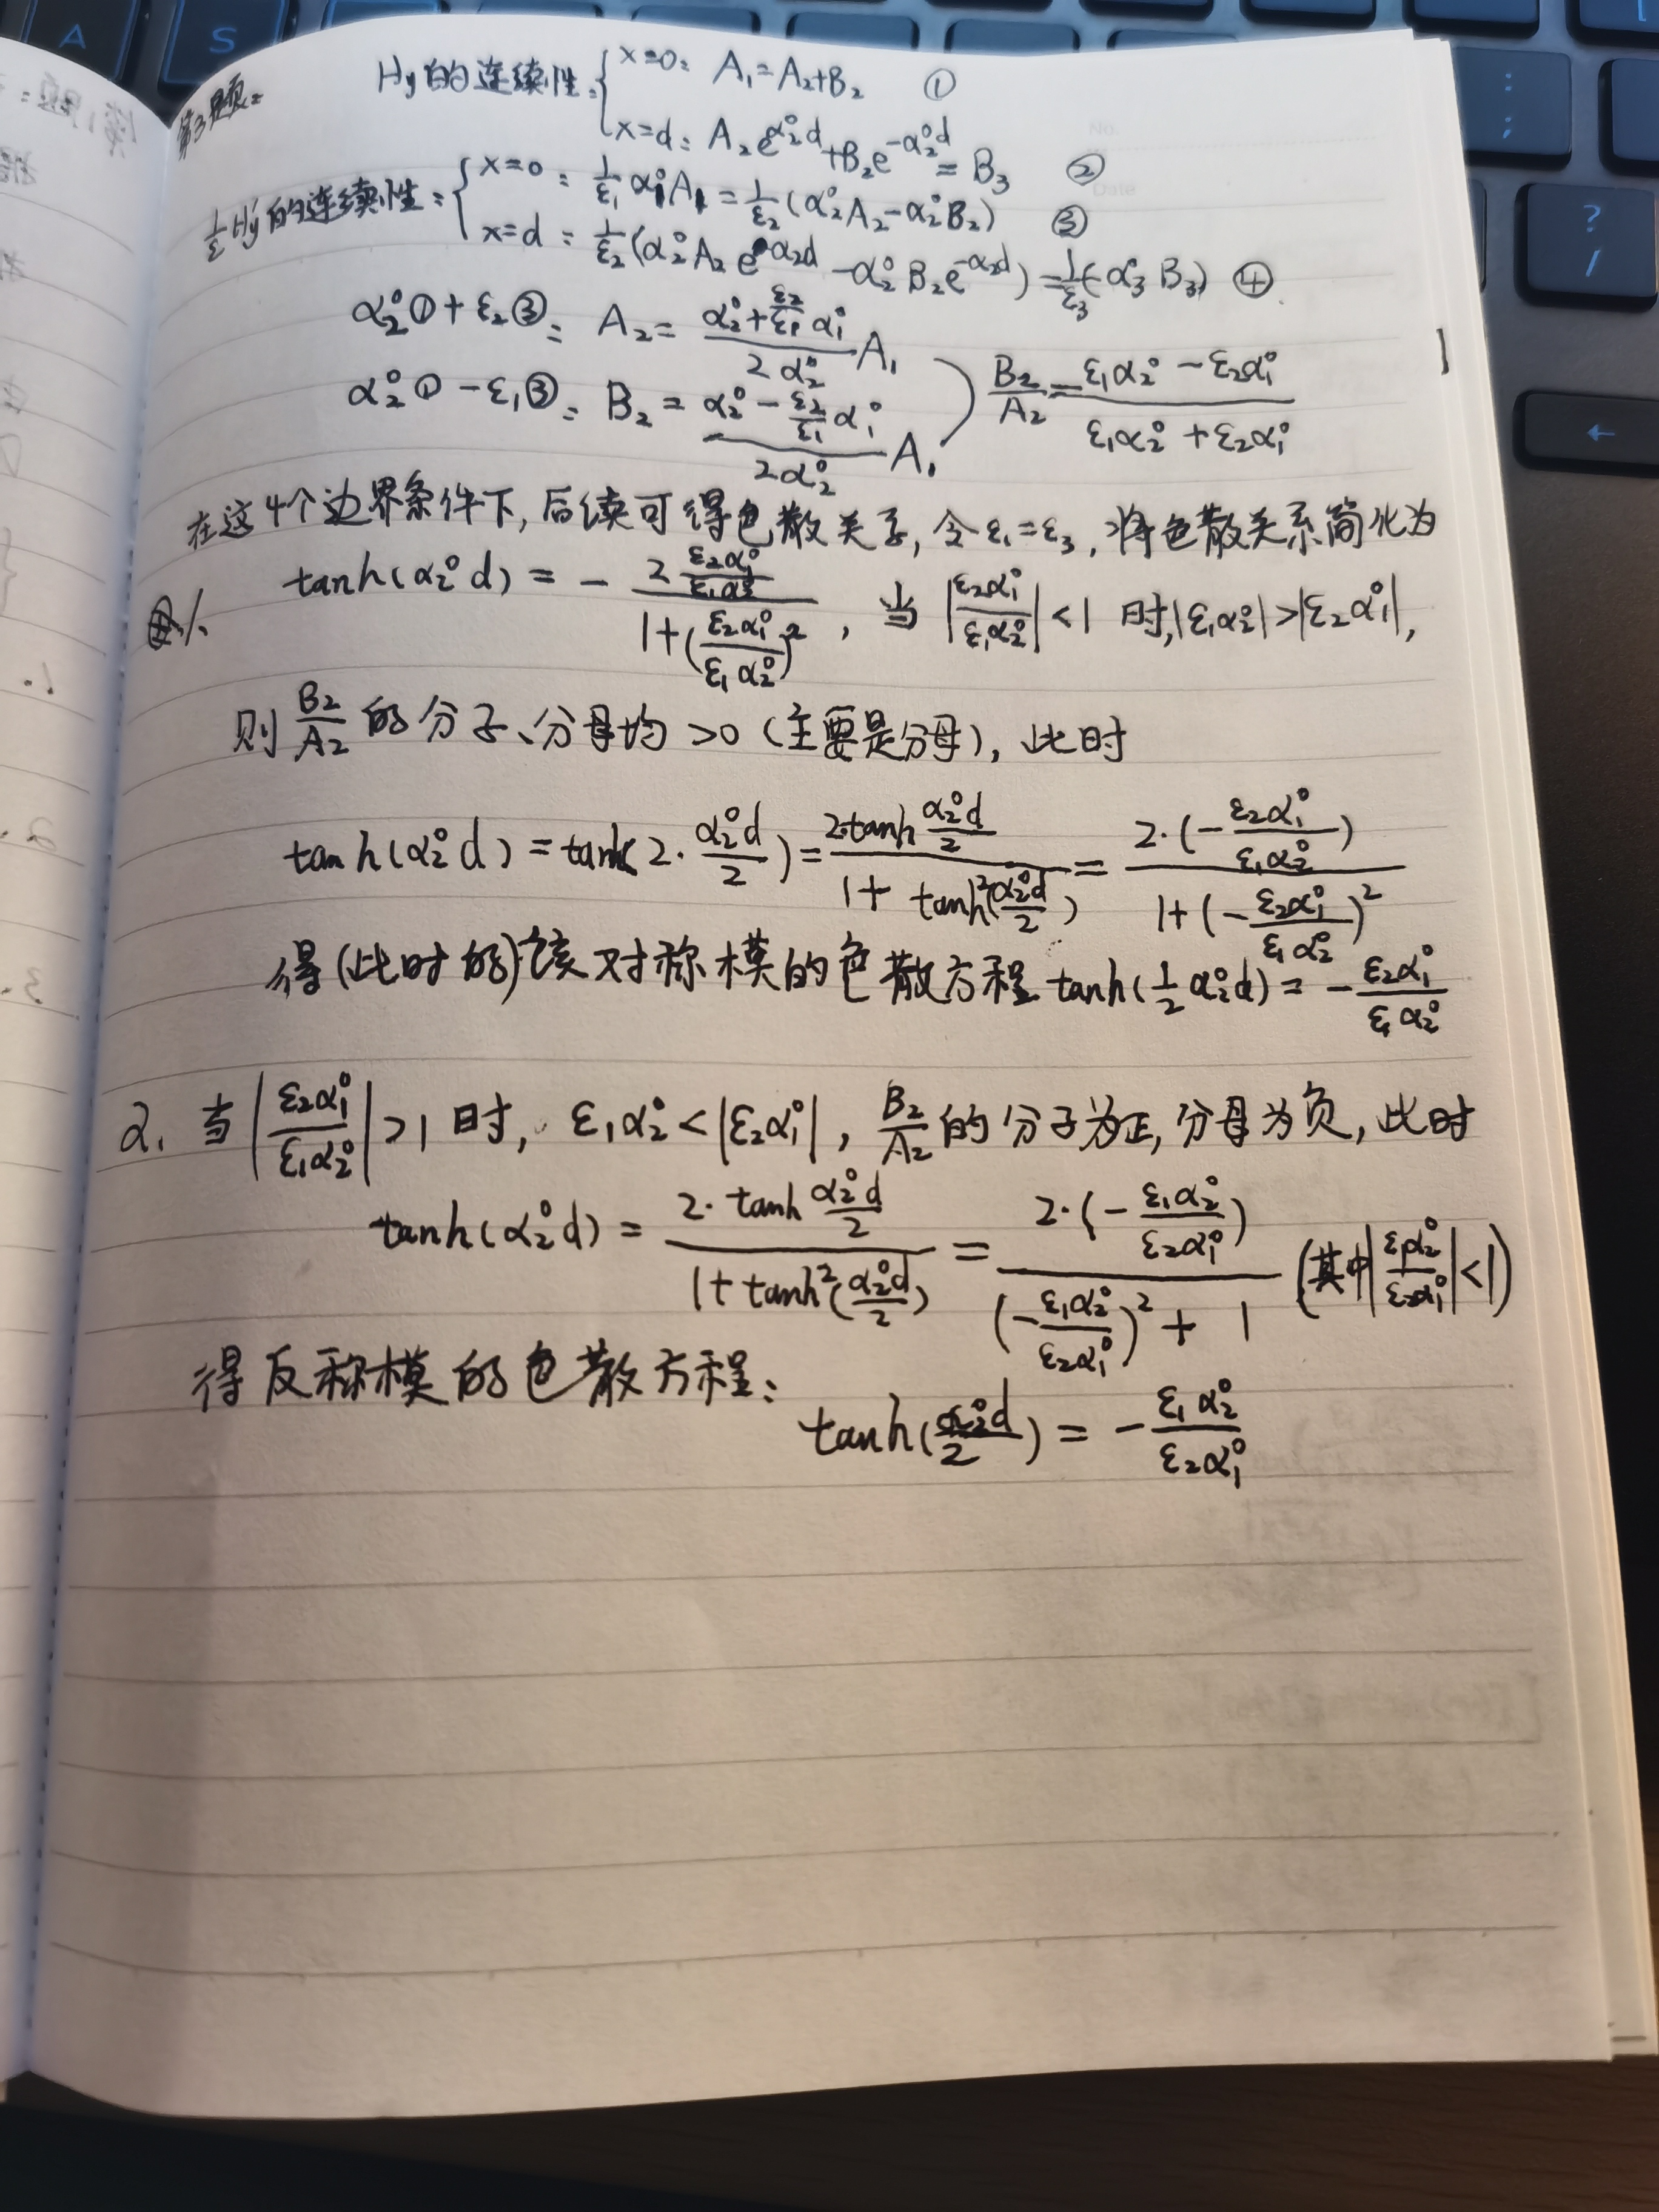 第3题:
Hy的连续性: { x=0: A₁=A₂+B₂ ①
x=d: A₂e^{α₂⁰d}+B₂e^{-α₂⁰d}=B₃ ②
1/ε Hy'的连续性: { x=0: 1/ε₁ α₁⁰A₁=1/ε₂(α₂⁰A₂-α₂⁰B₂) ③
x=d: 1/ε₂(α₂⁰A₂e^{α₂d}-α₂⁰B₂e^{-α₂d})=1/ε₃(-α₃⁰B₃) ④
α₂⁰①+ε₂③: A₂=(α₂⁰+(ε₂/ε₁)α₁⁰)/(2α₂⁰) A₁
α₂⁰①-ε₁③: B₂=(α₂⁰-(ε₂/ε₁)α₁⁰)/(2α₂⁰) A₁
B₂/A₂=(ε₁α₂⁰-ε₂α₁⁰)/(ε₁α₂⁰+ε₂α₁⁰)
在这4个边界条件下,后续可得色散关系,令ε₁=ε₃,将色散关系简化为
tanh(α₂⁰d)=-(2 ε₂α₁⁰/ε₁α₂⁰)/(1+(ε₂α₁⁰/ε₁α₂⁰)²), 当|ε₂α₁⁰/ε₁α₂⁰|<1时,|ε₁α₂⁰|>|ε₂α₁⁰|,
1.
则B₂/A₂的分子、分母均>0(主要是分母),此时
tanh(α₂⁰d)=tanh(2·α₂⁰d/2)=(2·tanh α₂⁰d/2)/(1+tanh²(α₂⁰d/2))=(2·(-ε₂α₁⁰/ε₁α₂⁰))/(1+(-ε₂α₁⁰/ε₁α₂⁰)²)
得(此时的)该对称模的色散方程 tanh(½α₂⁰d)=-ε₂α₁⁰/ε₁α₂⁰
2. 当|ε₂α₁⁰/ε₁α₂⁰|>1时, ε₁α₂⁰<|ε₂α₁⁰|, B₂/A₂的分子为正,分母为负,此时
tanh(α₂⁰d)=(2·tanh α₂⁰d/2)/(1+tanh²(α₂⁰d/2))=(2·(-ε₁α₂⁰/ε₂α₁⁰))/((-ε₁α₂⁰/ε₂α₁⁰)²+1) (其中|ε₁α₂⁰/ε₂α₁⁰|<1)
得反称模的色散方程:
tanh(α₂⁰d/2)=-ε₁α₂⁰/ε₂α₁⁰